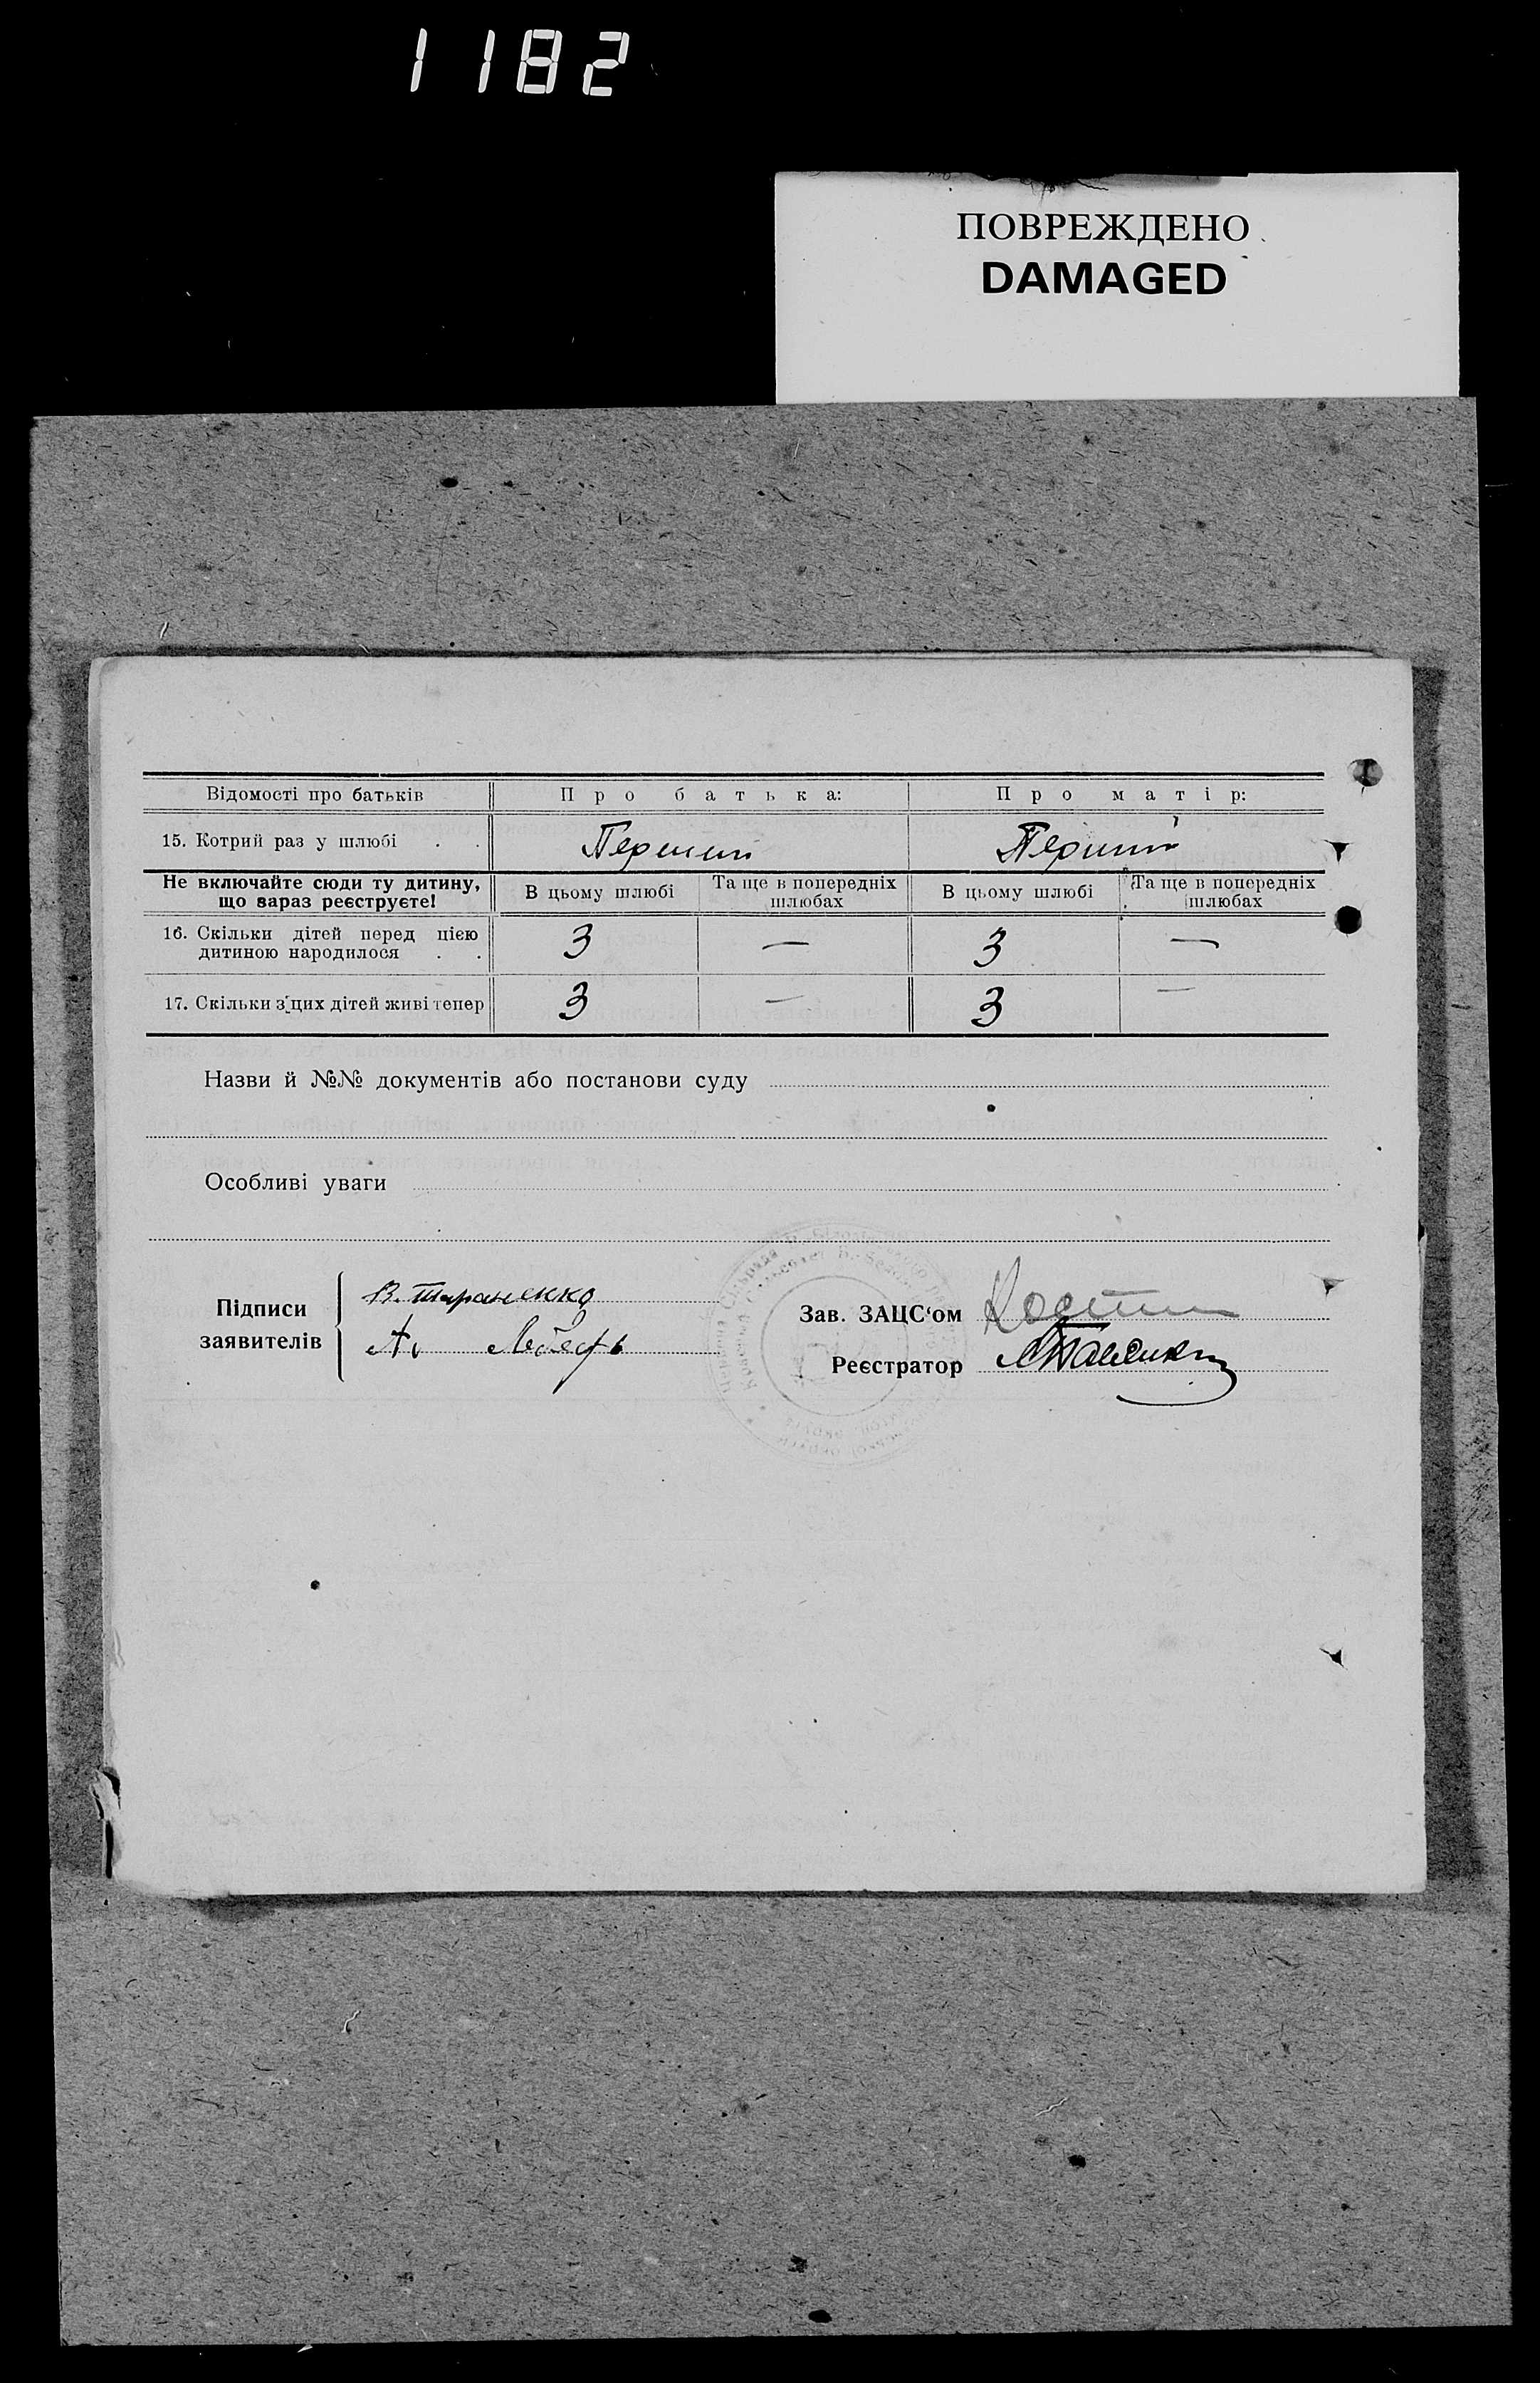 1182
ПОВРЕЖДЕНО
DAMAGED
Відомості про батьків Про батька: Про матір:
15. Котрий раз у шлюбі . . Перший Перший
Не включайте сюди ту дитину, що зараз реєструєте! В цьому шлюбі Та ще в попередніх шлюбах В цьому шлюбі Та ще в попередніх шлюбах
16. Скільки дітей перед цією дитиною народилося . . 3 — 3 —
17. Скільки з цих дітей живі тепер 3 — 3 —
Назви й №№ документів або постанови суду
Особливі уваги
Підписи заявителів
В. Тараненко
Зав. ЗАЦС‘ом
Реєстратор